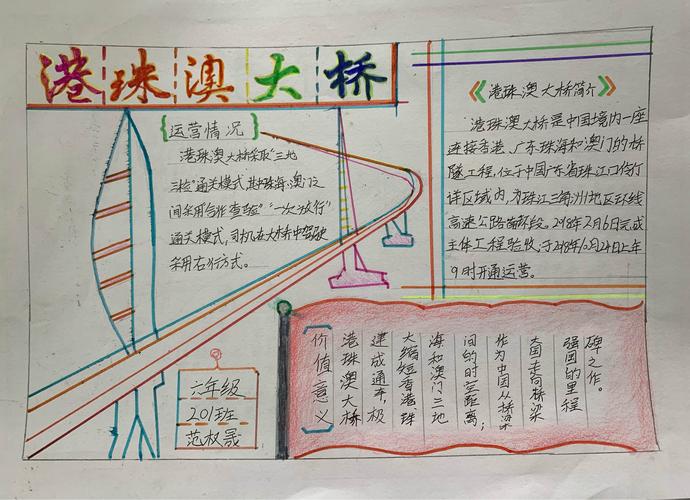 港珠澳大桥
运营情况
港珠澳大桥采取“三地
三检”通关模式,其中珠海、澳门之
间采用合作查验“一次放行”
通关模式,司机在大桥中驾驶
采用右行方式。
港珠澳大桥简介
港珠澳大桥是中国境内一座
连接香港、广东珠海和澳门的桥
隧工程,位于中国广东省珠江口伶仃
洋区域内,为珠江三角洲地区环线
高速公路南环段。2018年2月6日完成
主体工程验收,于2018年10月24日上午
9时开通运营。
价值意义
港珠澳大桥
建成通车,极
大缩短香港珠
海和澳门三地
间的时空距离;
作为中国从桥梁
大国走向桥梁
强国的里程
碑之作。
六年级
201班
范权晟